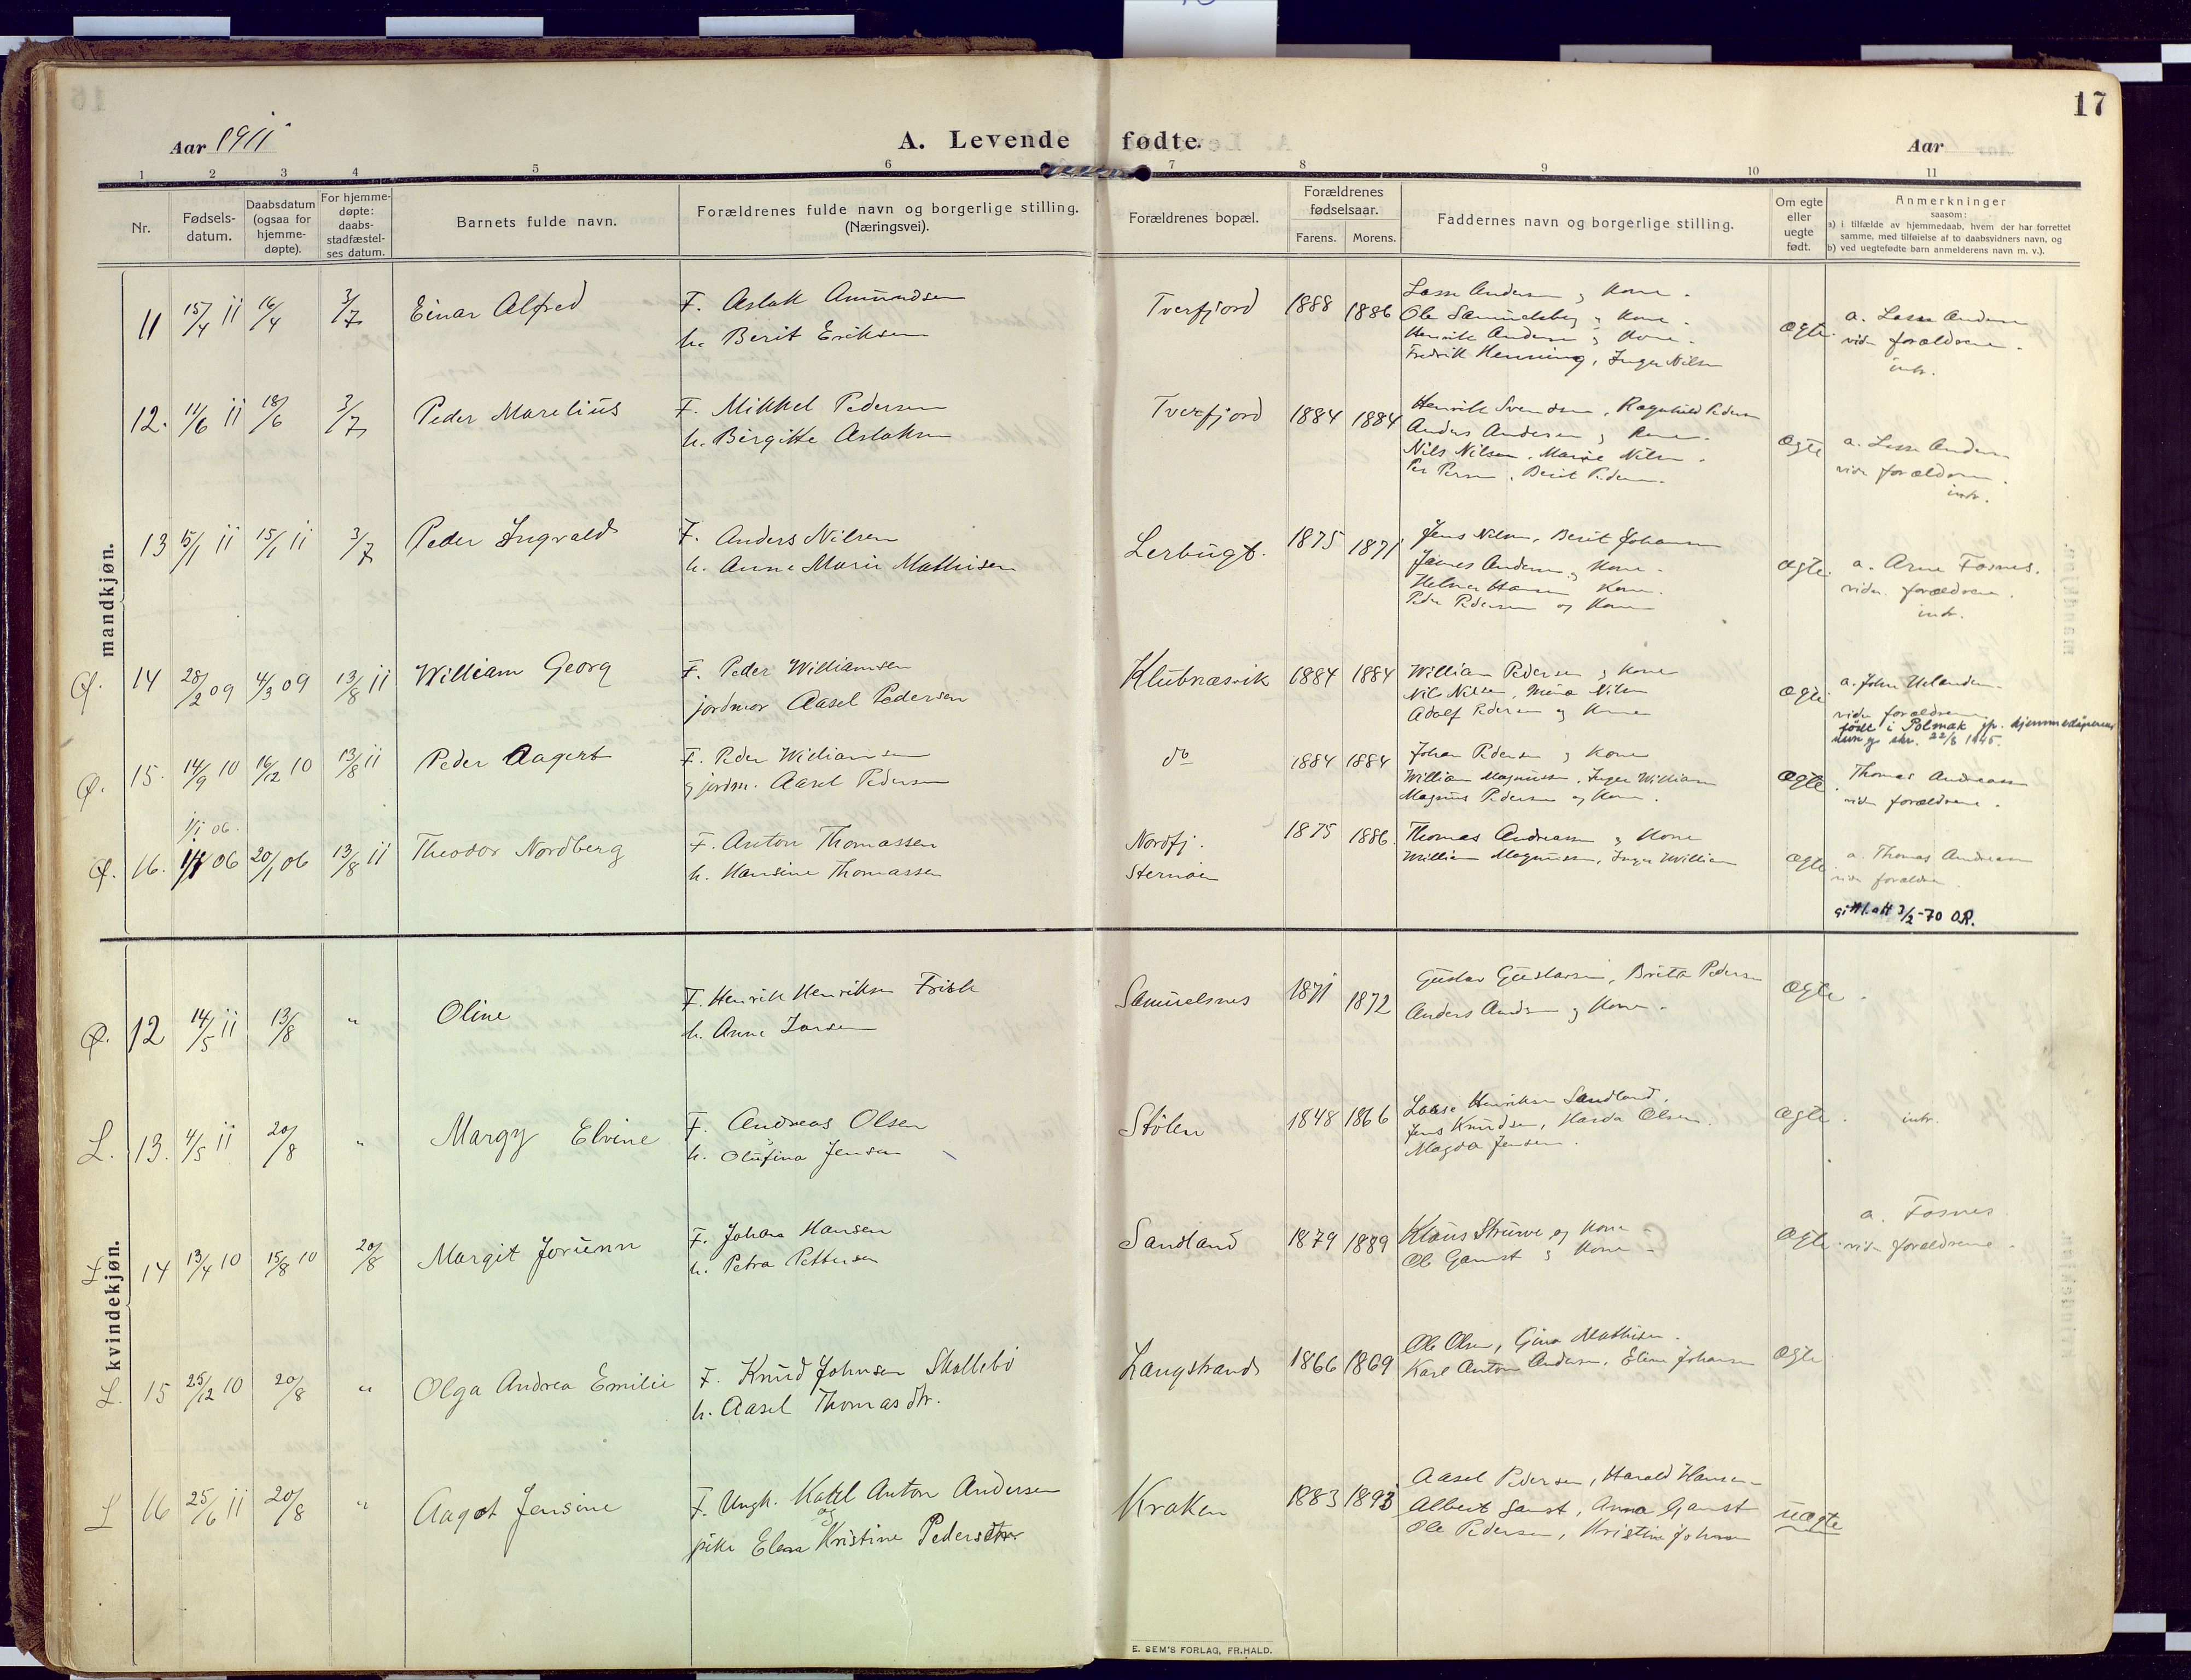 17
Aar 1911
A. Levende fødte.
Aar
1 2 3 4 5 6 7 8 9 10 11
Nr.
Fødsels-
datum.
Daabsdatum
(ogsaa for
hjemme-
døpte).
For hjemme-
døpte:
daabs-
stadfæstel-
ses datum.
Barnets fulde navn.
Forældrenes fulde navn og borgerlige stilling.
(Næringsvei).
Forældrenes bopæl.
Forældrenes
fødselsaar.
Farens. Morens.
Faddernes navn og borgerlige stilling.
Om egte
eller
uegte
født.
Anmerkninger
saasom:
a) i tilfælde av hjemmedaab, hvem der har forrettet
samme, med tilføielse af to daabsvidners navn, og
b) ved uegtefødte barn anmelderens navn m. v.).
mandkjøn.
11 15/4 11 16/4 3/7 Einar Alfred
F. Aslak Amundsen
h. Berit Eriksen
Tverfjord 1888 1886
Lasse Andersen og Kone.
Ole Samuelsberg og Kone.
Henrik Andersen og Kone.
Fredrik Henning, Inger Nilsen
ægte.
a. Lasse Andersen
vidn forældrene.
intr.
12. 11/6 11 18/6 3/7 Peder Marelius
F. Mikkel Pedersen
h. Birgitte Aslaksen
Tverfjord 1884 1884
Henrik Svendsen, Ragnhild Pedersen
Anders Andersen og Kone.
Nils Nilsen, Marie Nilsen.
Per Persen, Berit Pedersen.
ægte
a. Lasse Andersen
vidn forældrene.
intr.
13 15/1 11 15/1 11 3/7 Peder Ingvald
F. Anders Nilsen
h. Anne Marie Mathisen
Lerbugt. 1875 1871
Jens Nilsen, Berit Johansen
James Andersen og Kone.
Helmer Hansen Kone.
Peder Pedersen og Kone
ægte.
a. Arne Fosnes.
vidn. forældrene.
intr.
Ø. 14 28/2 09 4/3 09 13/8 11 William Georg
F. Peder Williamsen
jordmor Aasel Pedersen
Klubnæsvik 1884 1884
William Pedersen og Kone
Nils Nilsen, Mina Nilsen
Adolf Pedersen og Kone
ægte.
a. John Uelanden.
vidn forældrene
født i Polmak jfr. hjemmedøpernes
skr. 22/8 1945.
Ø. 15. 14/9 10 16/12 10 13/8 11 Peder Aagert
F. Peder Williamsen
og jordm. Aasel Pedersen
do 1884 1884
Johan Pedersen og Kone
William Magnussen, Inger William
Magnus Pedersen og Kone.
ægte.
Thomas Andreassen
vidn forældrene.
1/1 06.
Ø. 16. 14/1 06 20/1 06 13/8 11 Theodor Nordberg
F. Anton Thomassen
h. Hansine Thomassen
Nordfj.
Sternøen
1875 1886.
Thomas Andreassen og Kone
William Magnussen, Inger William
ægte
a. Thomas Andreassen
vidn forældre.
att 3/2-70 O.R.
kvindekjøn.
Ø. 12 14/5 11 13/8 " Oline
F. Henrik Henriksen Frisk
h. Anne Larsen
Samuelsnes 1871 1872
Gustav Gustavsen, Brita Pedersen
Anders Andersen og Kone.
ægte.
L. 13. 4/5 11 20/8 " Margy Elvine
F. Andreas Olsen
h. Olufina Jensen
Stølen 1848 1866
Lasse Henriksen Sandland.
Jens Knudsen, Harda Olsen.
Magda Jensen.
ægte.
intr.
L 14 13/4 10 15/8 10 20/8 Margit Jorunn
F. Johan Hansen
h. Petra Pettersen
Sandland 1879 1889
Klaus Struwe og Kone
Ole Gamst og Kone
ægte.
a. Fosnes
vidn forældrene.
L. 15 25/12 10 20/8 " Olga Andrea Emilie
F. Knud Johnsen Skallebø
h. Aasel Thomasdtr.
Langstrand 1866 1869
Ole Olsen, Gina Mathisen.
Karl Anton Andersen, Eline Johansen
ægte
L 16 25/6 11 20/8 " Aagot Jensine
F. Ungk. Karl Anton Andersen
og
pike Elen Kristine Pedersdtr.
Kraken 1883 1893
Aasel Pedersen, Harald Hansen
Albert Gamst, Anna Gamst
Ole Pedersen, Kristine Johnsen
uægte
E. SEM'S FORLAG, FR.HALD.